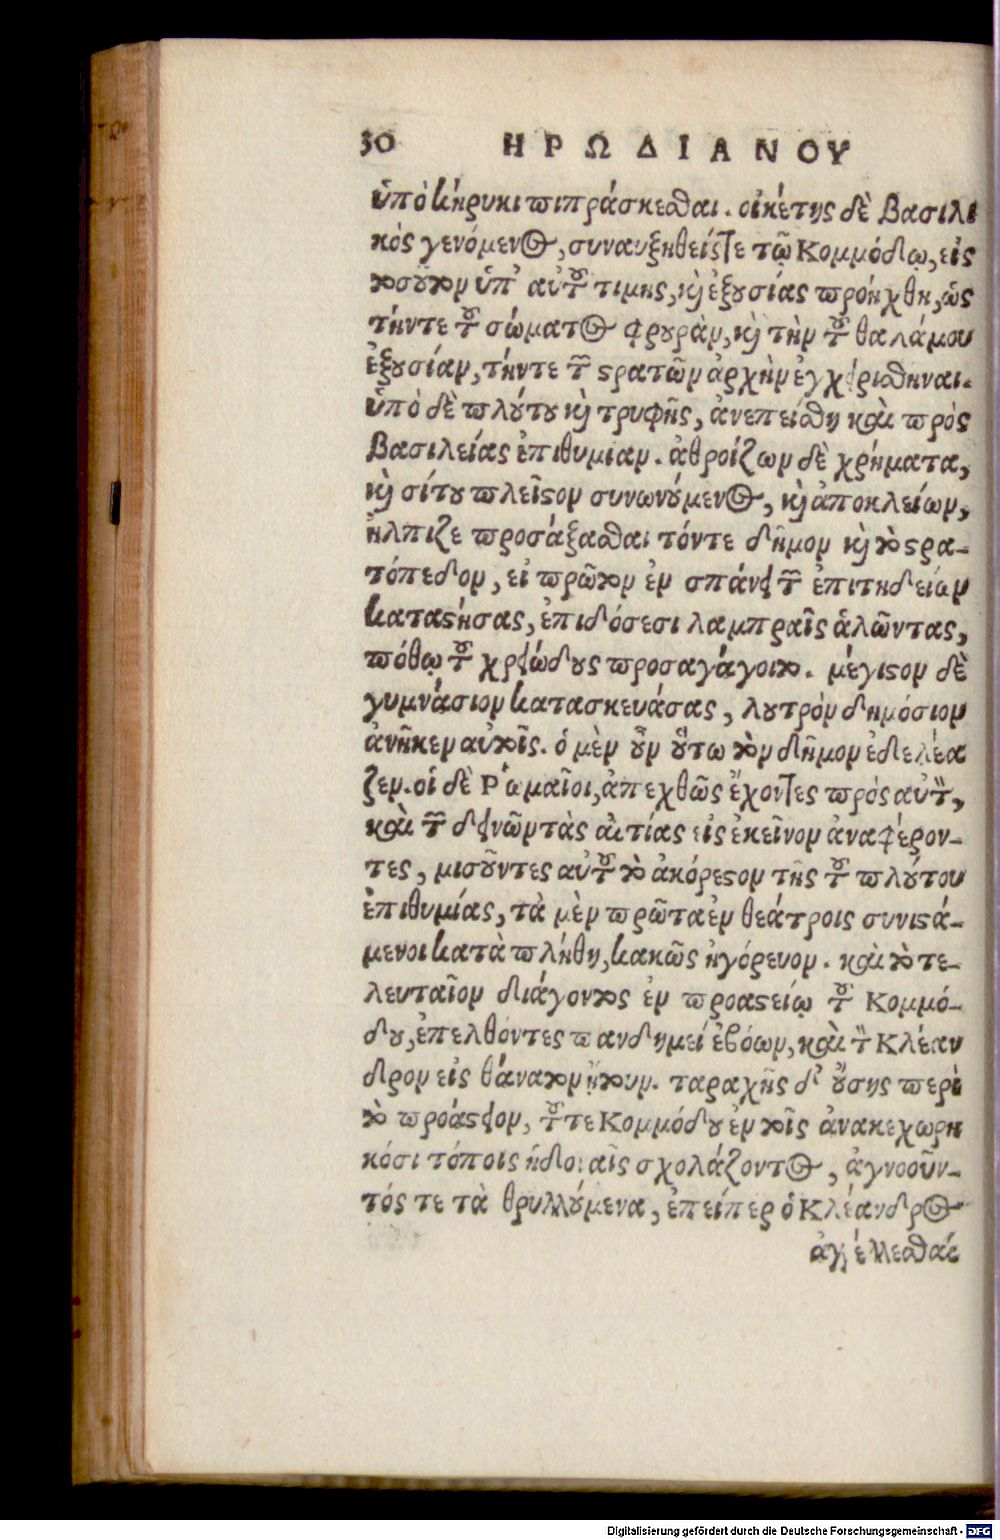 30 ΗΡΩΔΙΑΝΟΥ
ὑπὸ κήρυκι πιπράσκεσθαι. οἰκέτης δὲ βασιλι
κὸς γενόμενος, συναυξηθείς τε τῷ Κομμόδῳ, εἰς
τοσοῦτον ὑπ' αὐτοῦ τιμης, καὶ ἐξουσίας προήχθη, ὡς
τήντε τοῦ σώματος φρουρὰν, καὶ τὴν τοῦ θαλάμου
ἐξουσίαν, τήντε τῶν στρατῶν ἀρχὴν ἐγχειρισθηναι.
ὑπὸ δὲ πλούτου καὶ τρυφῆς, ἀνεπείσθη καὶ πρὸς
βασιλείας ἐπιθυμίαν. ἀθροίζων δὲ χρήματα,
καὶ σίτου πλεῖστον συνωνούμενος, καὶ ἀποκλείων,
ἠλπιζε προσάξασθαι τόντε δῆμον καὶ τὸ στρα-
τόπεδον, εἰ πρῶτον ἐν σπάνει τῶν ἐπιτηδείων
καταστήσας, ἐπιδόσεσι λαμπραῖς ἁλῶντας,
πόθῳ τοῦ χρειώδους προσαγάγοιτο. μέγιστον δὲ
γυμνάσιον κατασκευάσας, λουτρὸν δημόσιον
ἀνῆκεν αὐτοῖς. ὁ μὲν οὖν οὕτω τὸν δῆμον ἐδελέα
ζεν. οἱ δὲ Ρωμαῖοι, ἀπεχθῶς ἔχοντες πρὸς αὐτὸν,
καὶ τῶν δεινῶν τὰς αἰτίας εἰς ἐκεῖνον ἀναφέρον-
τες, μισοῦντες αὐτοῦ τὸ ἀκόρεστον τῆς τοῦ πλούτου
ἐπιθυμίας, τὰ μὲν πρῶτα ἐν θεάτροις συνιστά-
μενοι κατὰ πλήθη, κακῶς ἠγόρευον. καὶ τὸ τε-
λευταῖον διάγοντος ἐν προαστείῳ τοῦ Κομμό-
δου, ἐπελθόντες πανδημεί ἐβόων, καὶ τὸν Κλέαν
δρον εἰς θάνατον ᾔτουν. ταραχῆς δ' οὔσης περὶ
τὸ προάστειον, τοῦτε Κομμόδου ἐν τοῖς ἀνακεχωρη
κόσι τόποις ἡδοναῖς σχολάζοντος, ἀγνοοῦν-
τός τε τὰ θρυλλούμενα, ἐπείπερ ὁ Κλέανδρος
ἀγγέλλεσθαί
Digitalisierung gefördert durch die Deutsche Forschungsgemeinschaft - DFG